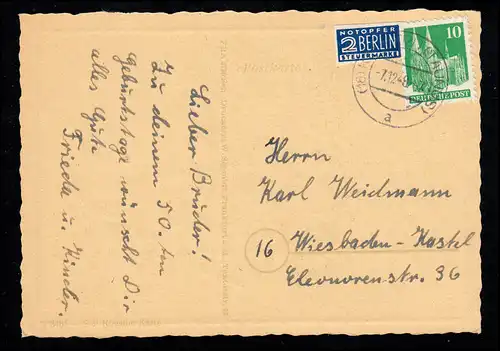 Lieber Bruder!
Zu deinem 50. ten
Geburtstage wünscht Dir
alles Gute
Friede u. Kinder.
NOTOPFER
2 BERLIN
STEUERMARKE
10
DEUTSCHE POST
-7.12.48
a
Herrn
Karl Weidmann
16 Wiesbaden-Kastel
Eleonorenstr. 36